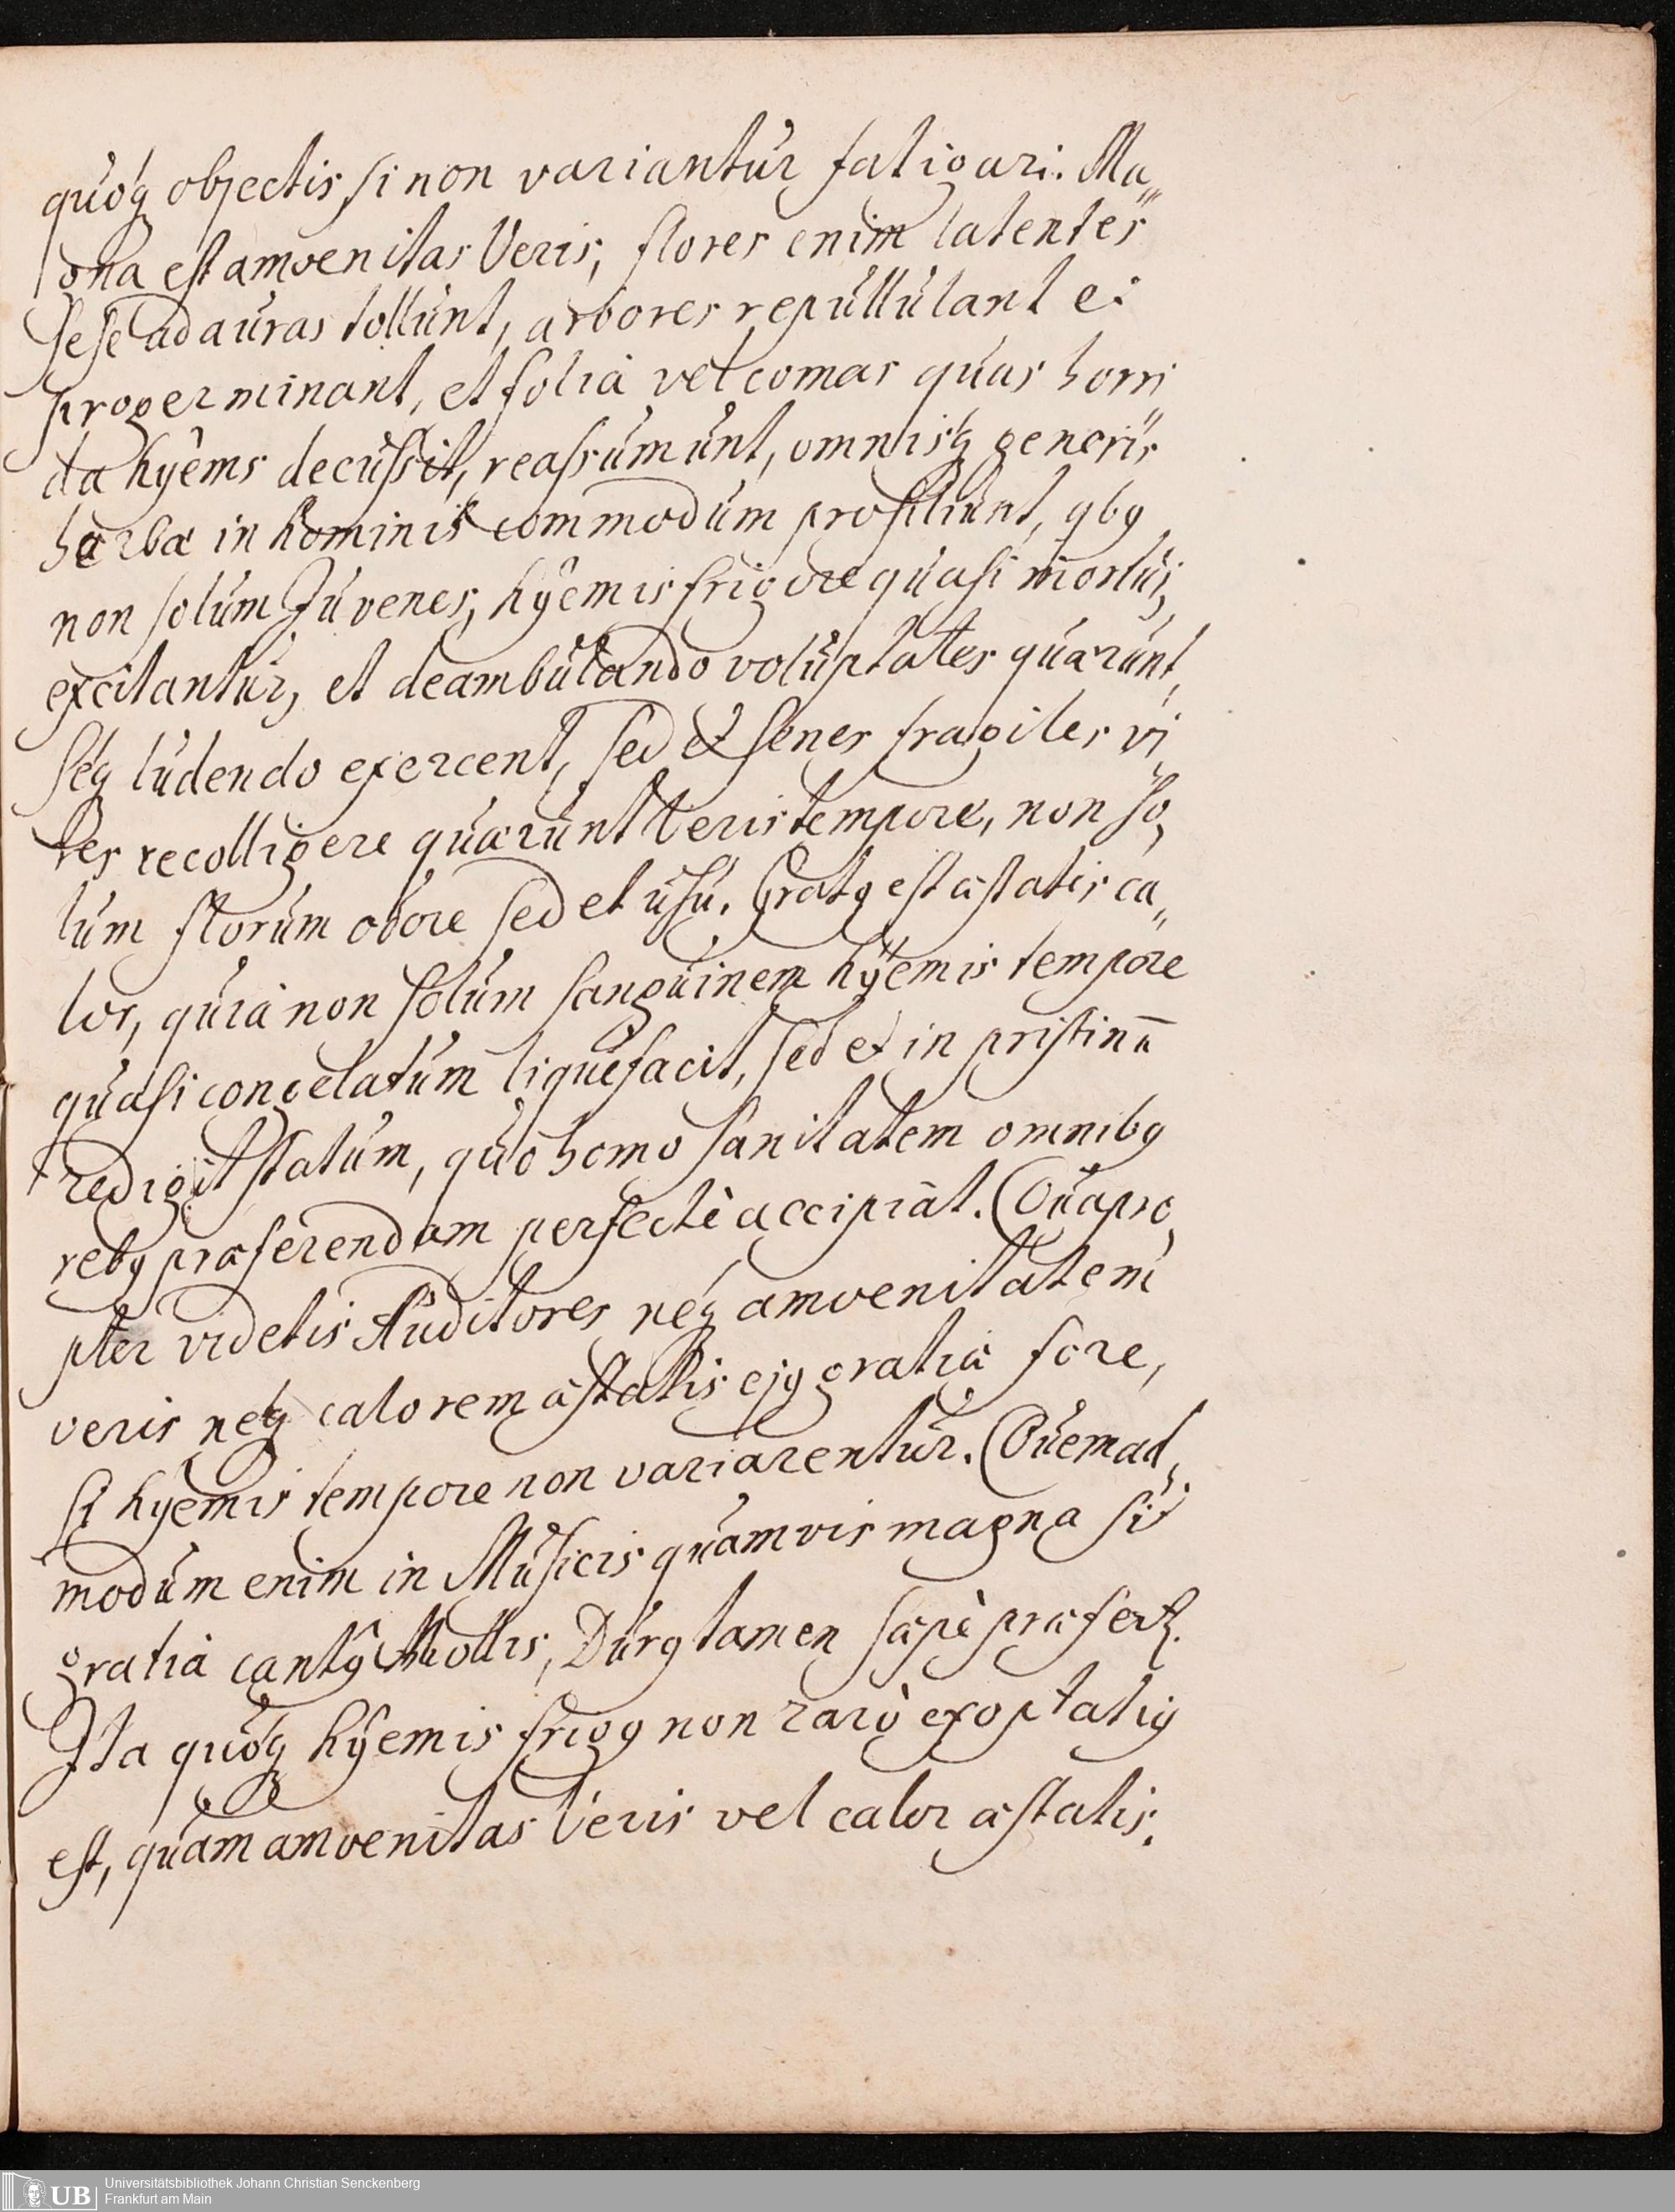 quóq objectis si non variantúr fatigari. Ma„
gna est amoenitas Veris; flores enim latentes
sese ad aúras tollúnt, arbores repúllúlant et
progerminant, et folia vel comas quas horri„
da hyems decússit, reassúmúnt, omnisq generis
herbæ in hominis commodúm prosiliúnt, qbg
non solúm Júvenes, hyemis frigore quasi mortúi,
excitantúr, et deambúlando volúptates quærúnt,
seq lúdendo exercent, sed et senes fragiles vi„
res recolligere quærúnt Veris tempore, non so„
lúm florúm odore sed et úsú. Gratg est æstatis ca„
lor, quia non solúm sangúinem hyemis tempore
quasi congelatúm liquefacit, sed et in pristinū
redigit statúm, quo homo sanitatem omnibg
rebg præferendam perfectè accipiat. Quapro„
pter videtis Auditores neq amoenitatem
veris neq calorem æstatis ejg gratiæ fore,
si hyemis tempore non variarentúr. Quemad„
modúm enim in Músicis quamvis magna sit
gratia cantg Mollis, Dúrg tamen sæpè præfertr.
Ita quóq hyemis frigg non rarò exoptatig
est, quam amoenitas Veris vel calor æstatis.
UB
Universitätsbibliothek Johann Christian Senckenberg
Frankfurt am Main